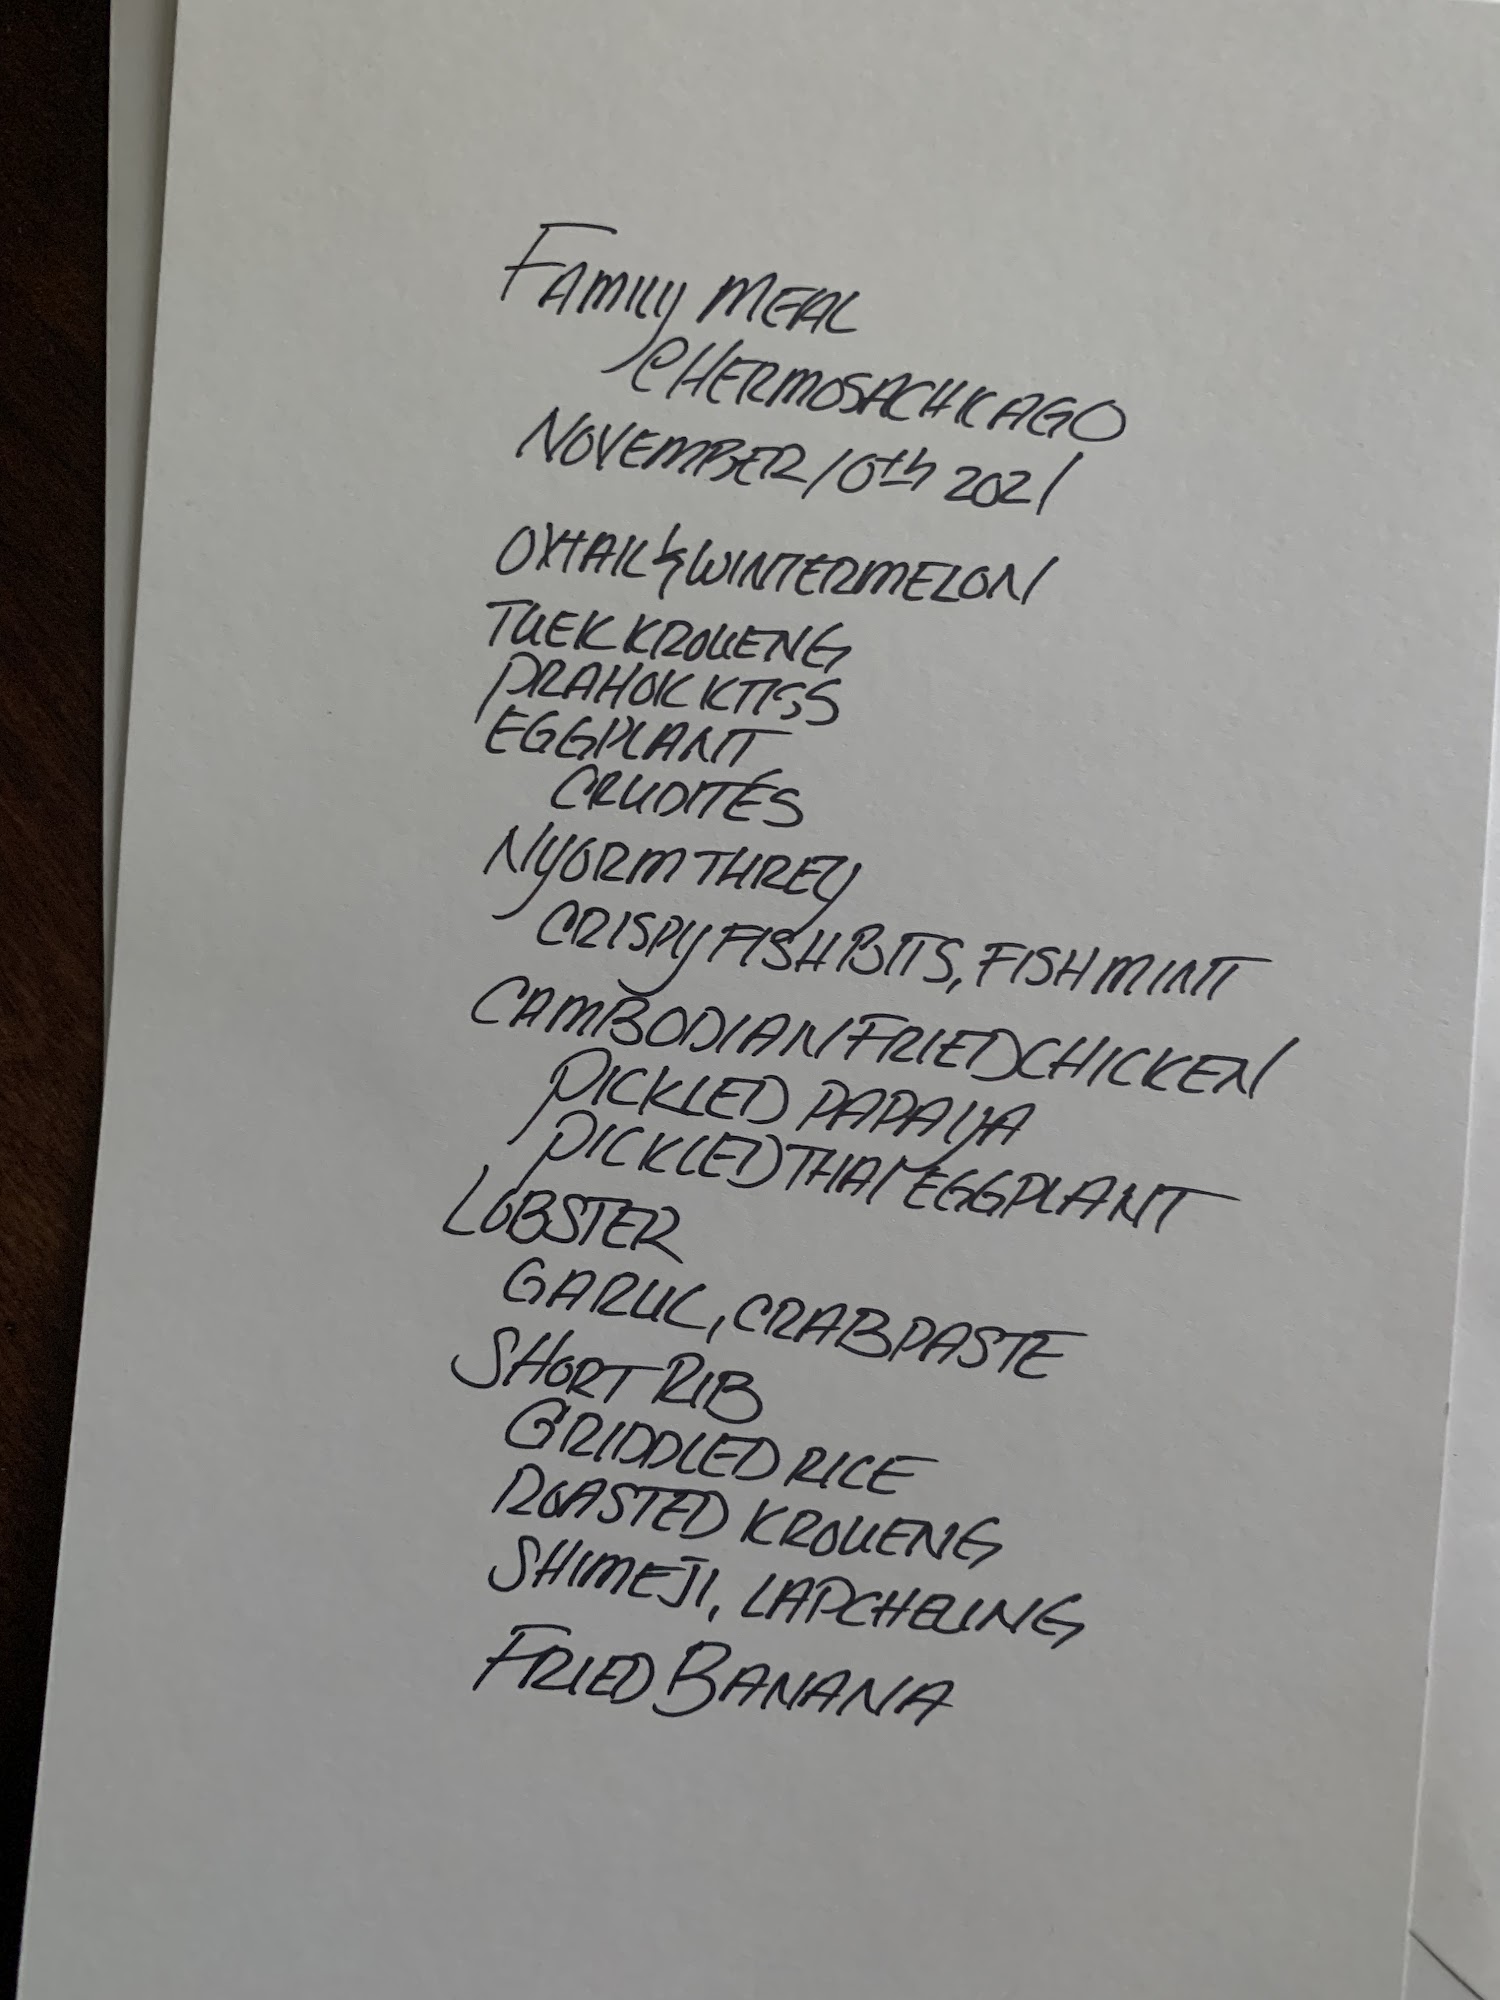 FAMILY MEAL
@HERMOSACHICAGO
NOVEMBER 10th 2021
OXTAIL & WINTERMELON
TUEK KROUENG
PRAHOK KTISS
EGGPLANT
CRUDITÉS
NYORM THREY
CRISPY FISH BITS, FISH MINT
CAMBODIAN FRIED CHICKEN
PICKLED PAPAYA
PICKLED THAI EGGPLANT
LOBSTER
GARLIC, CRAB PASTE
SHORT RIB
GRIDDLED RICE
ROASTED KROUENG
SHIMEJI, LAPCHEUNG
FRIED BANANA